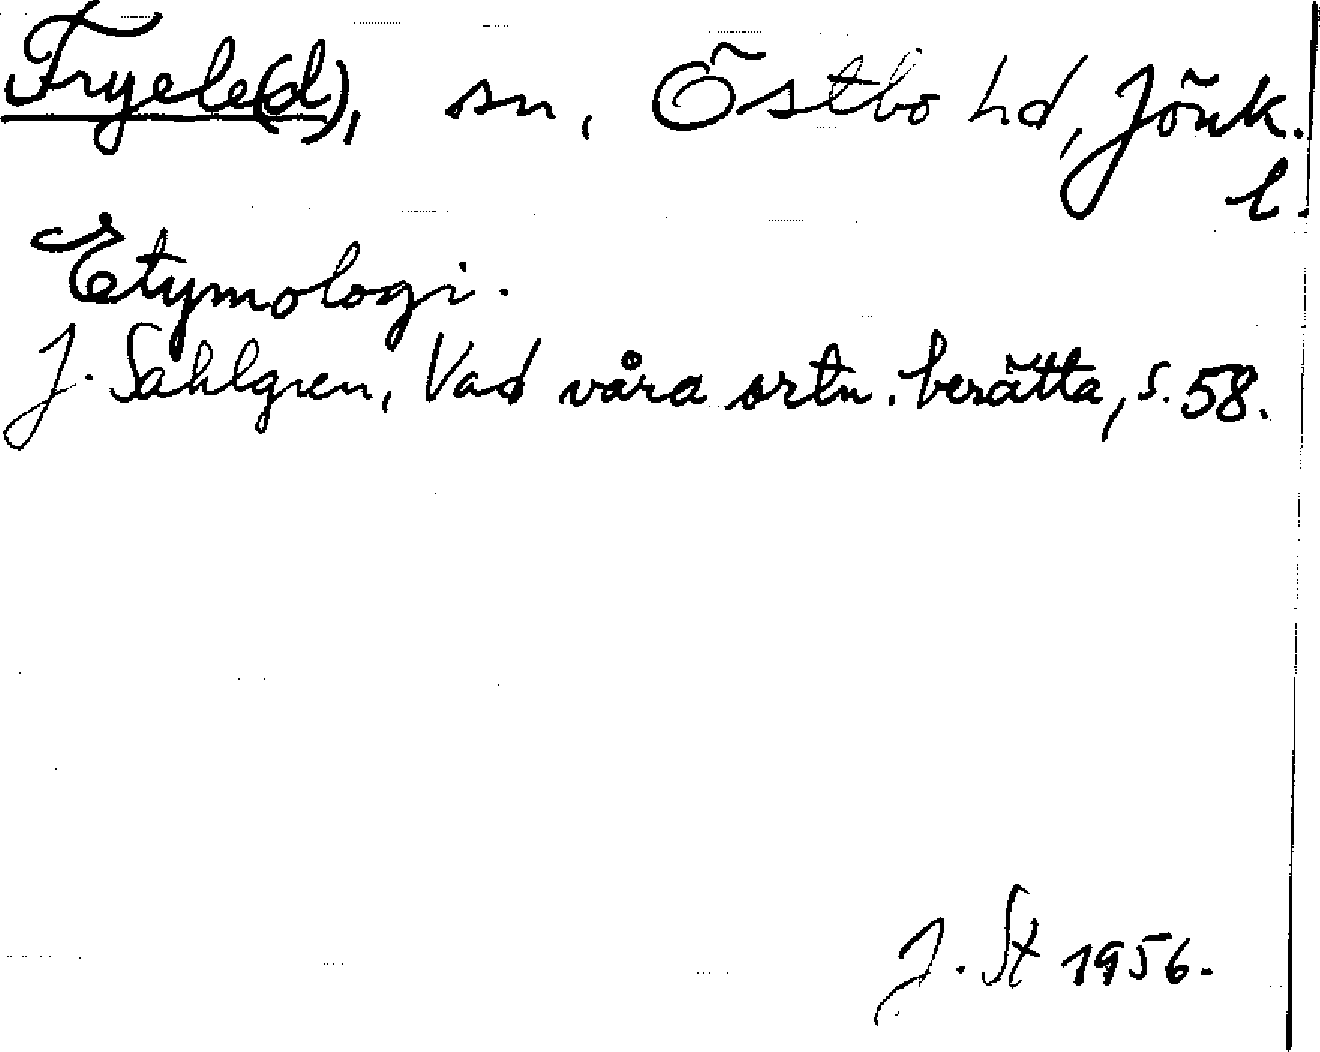 Fryele(d), sn, Östbo hd, Jönk.
l.
Etymologi.
J. Sahlgren, Vad våra ortn. berätta, s. 58.
J. St 1956.